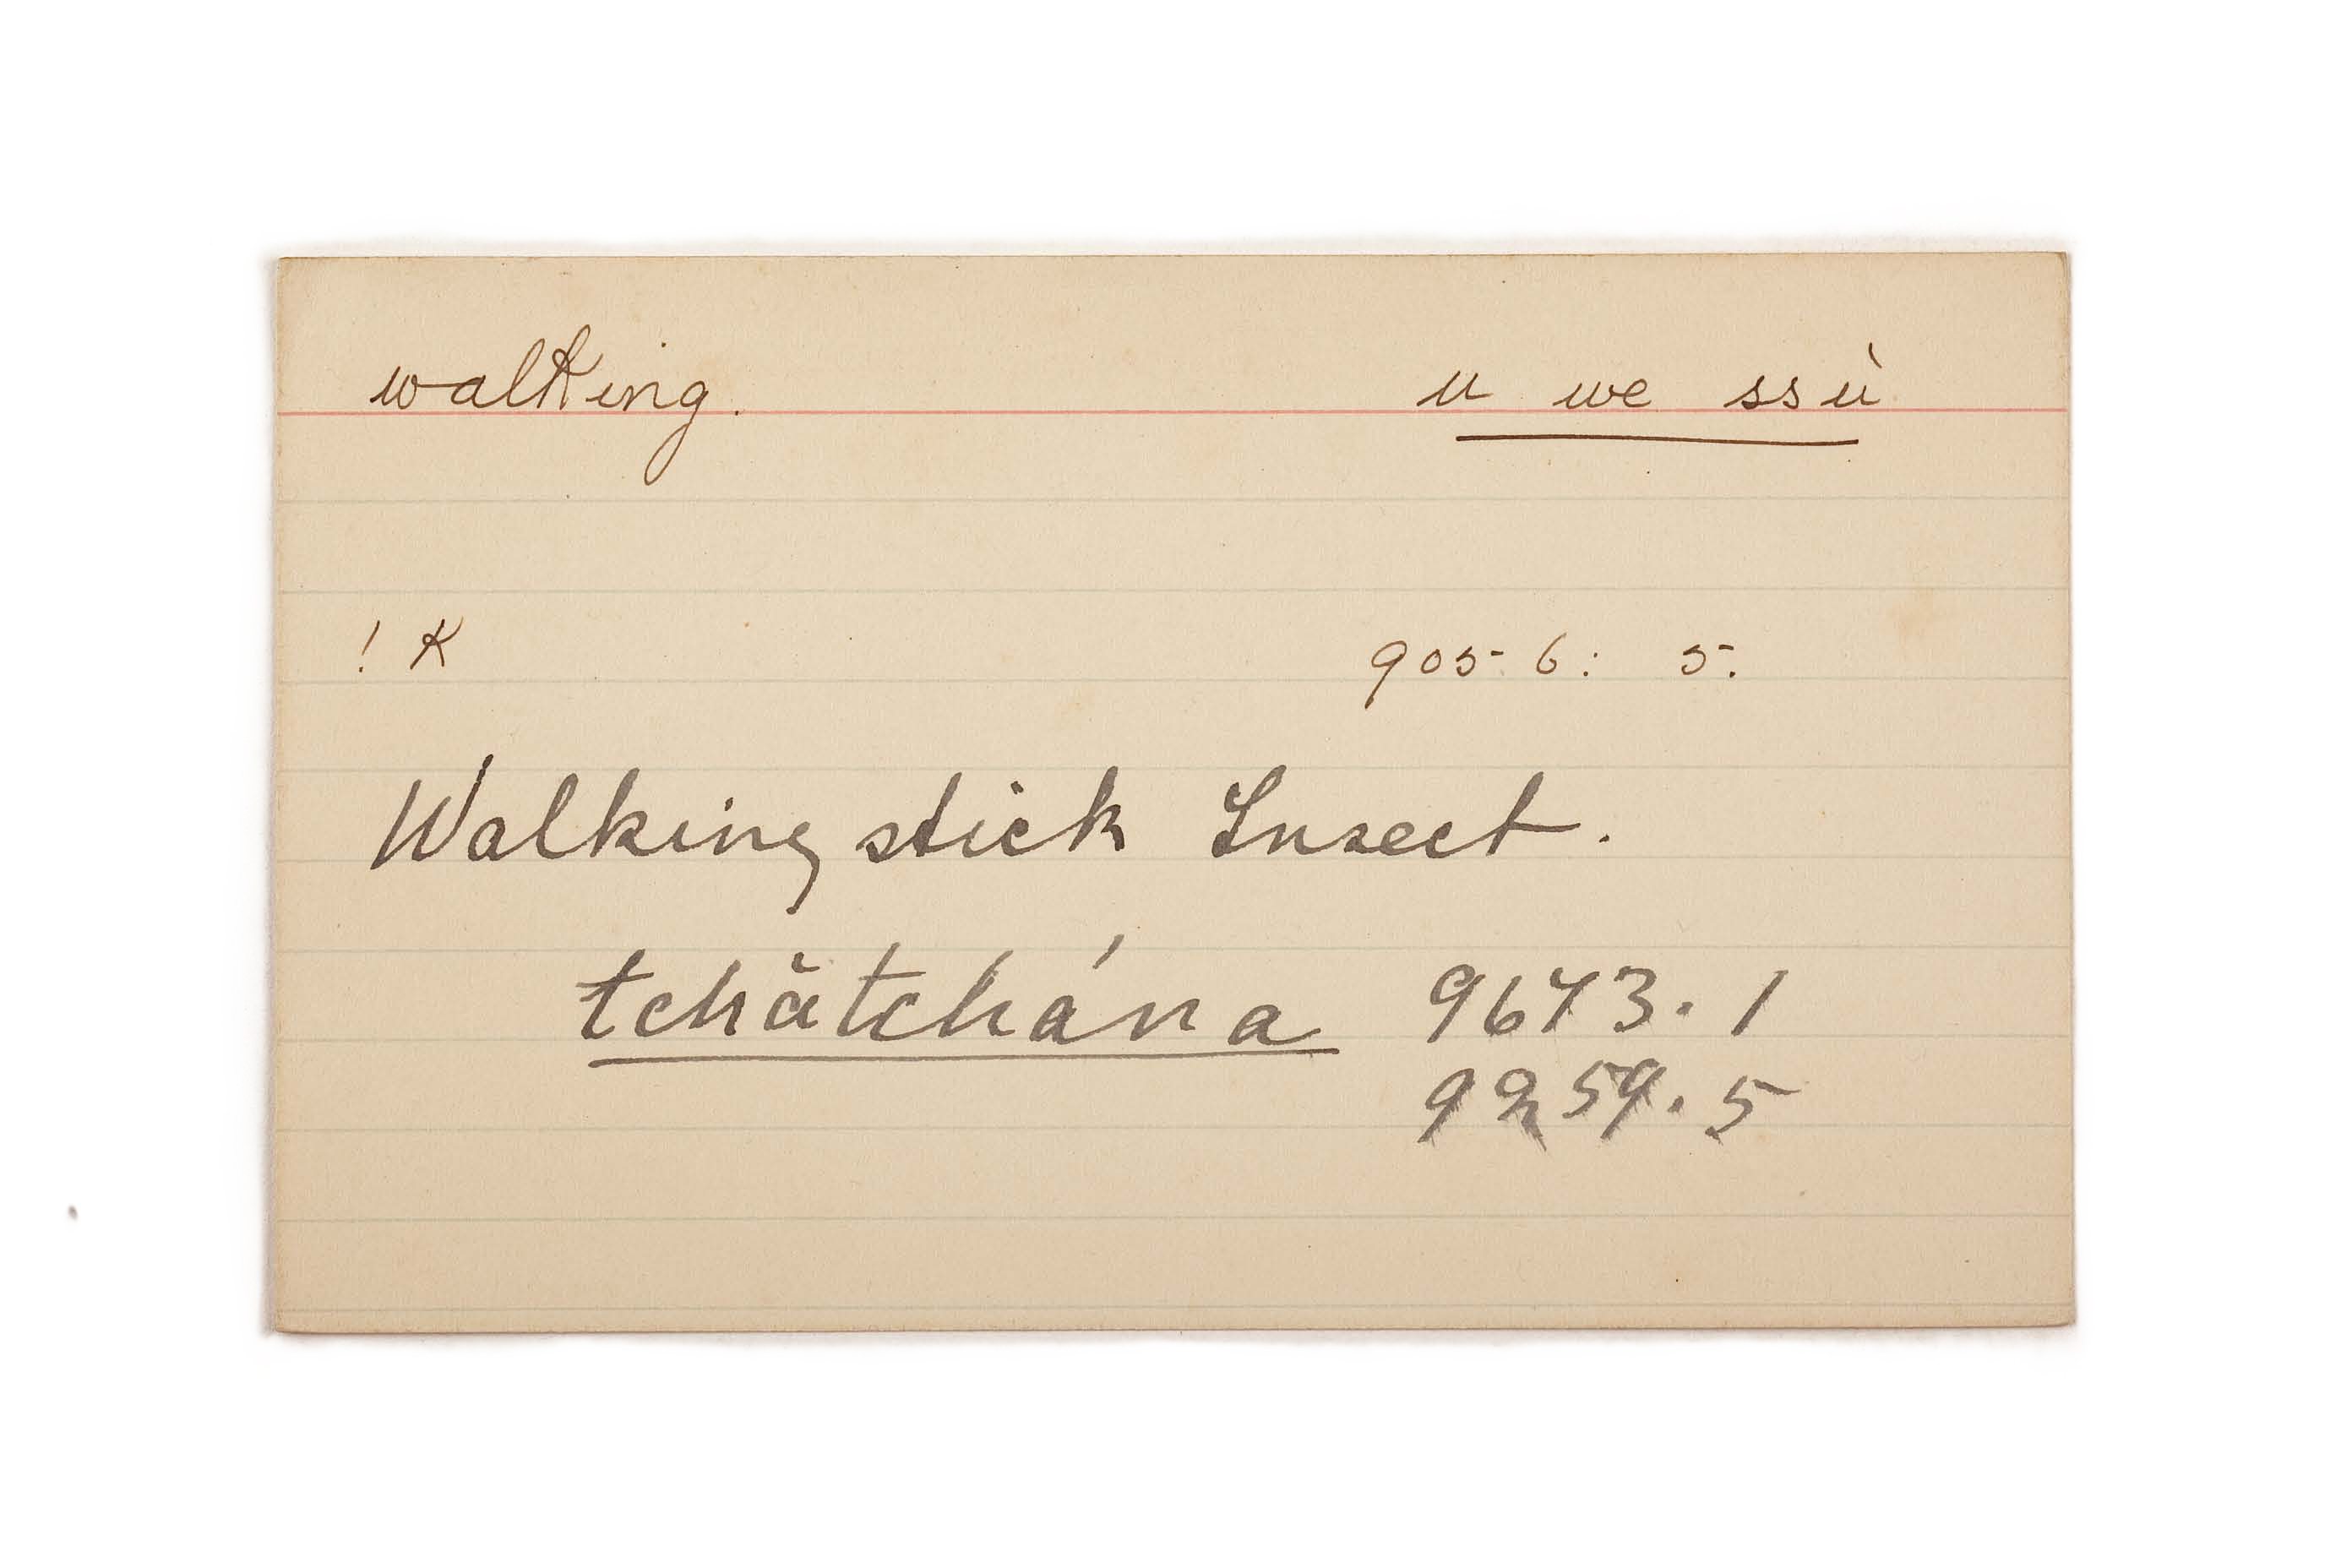 walking. u we ssù
! K 905 6: 5.
Walking stick Insect.
tchătchána 9673.1
9259.5